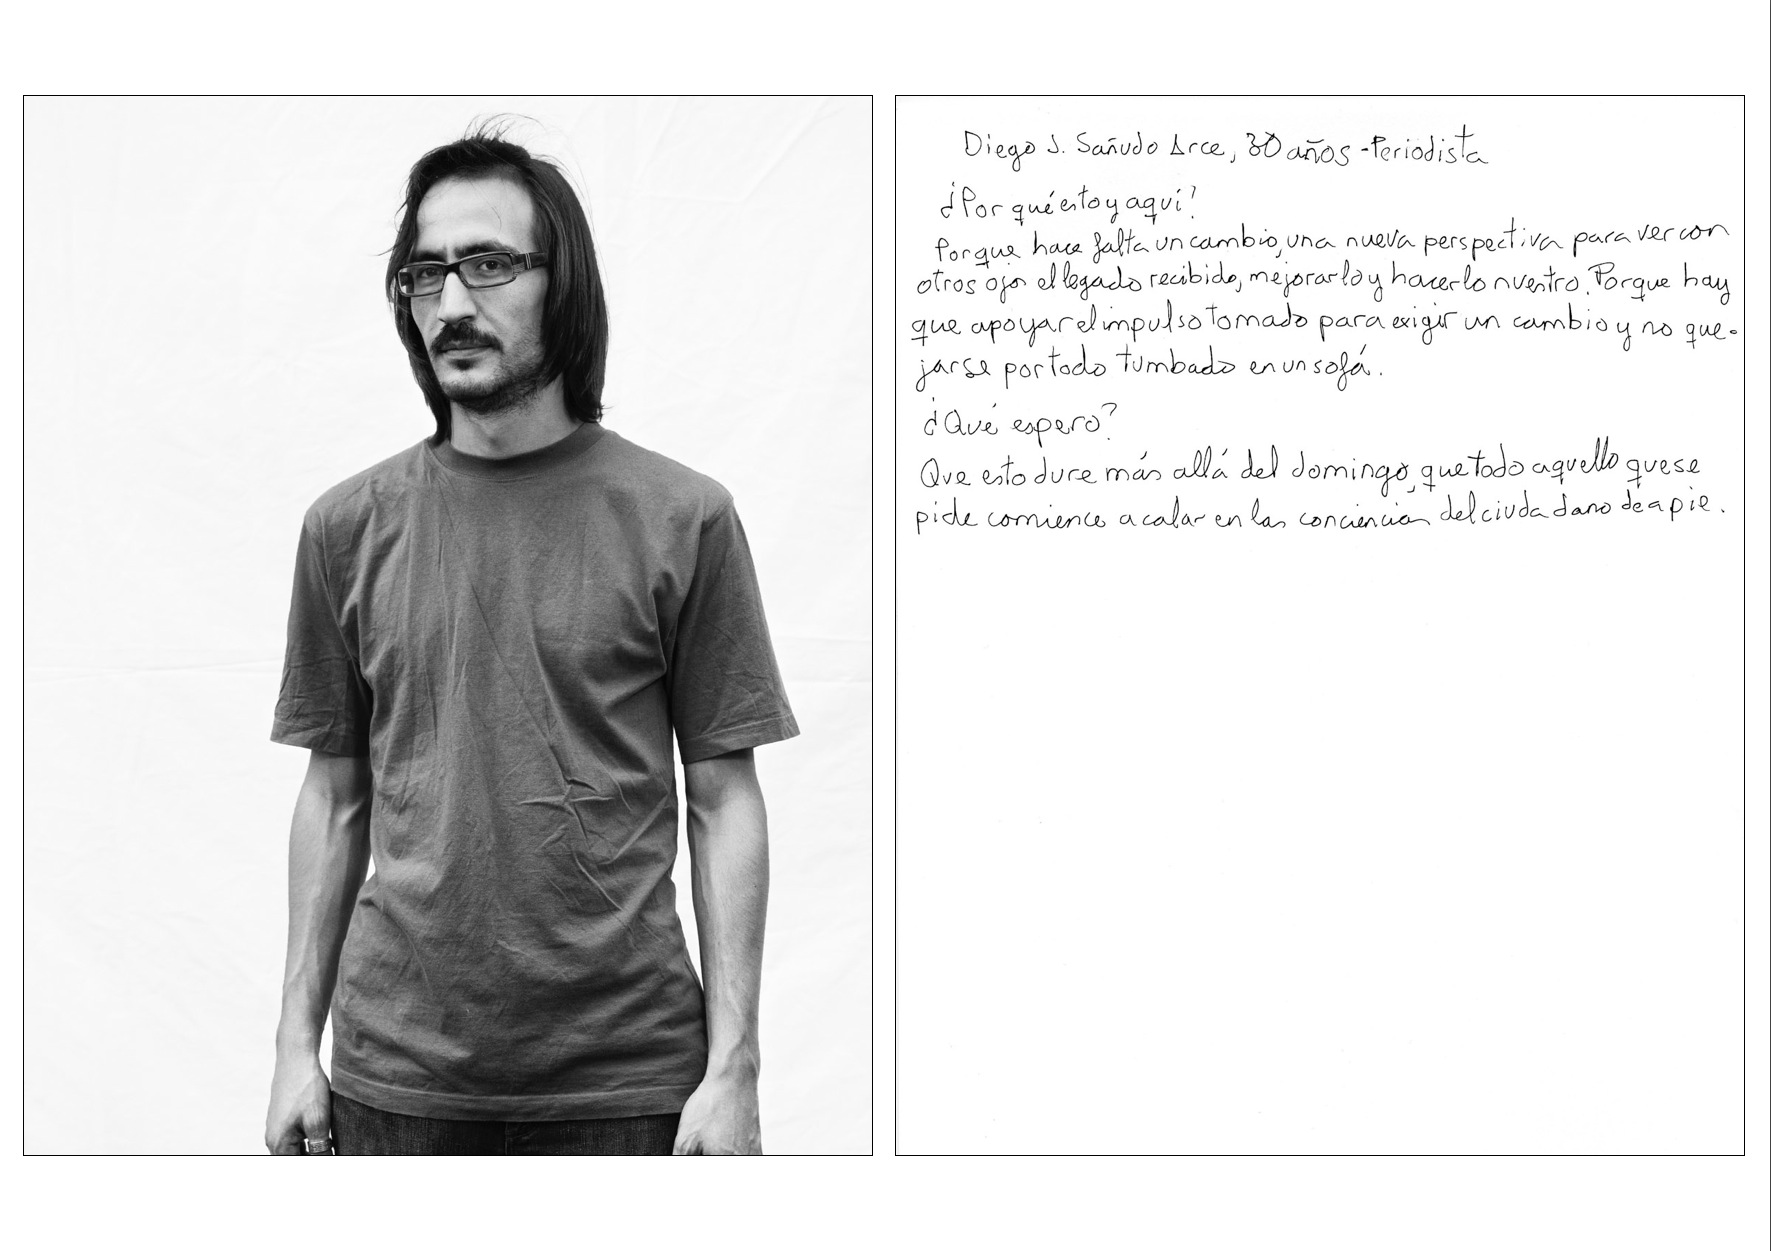 Diego J. Sañudo Arce, 30 años - Periodista
¿Por qué estoy aquí?
Porque hace falta un cambio, una nueva perspectiva para ver con
otros ojos el legado recibido, mejorarlo y hacerlo nuestro. Porque hay
que apoyar el impulso tomado para exigir un cambio y no que-
jarse por todo tumbado en un sofá.
¿Qué espero?
Que esto dure más allá del domingo, que todo aquello que se
pide comience a calar en las conciencias del ciudadano de a pie.